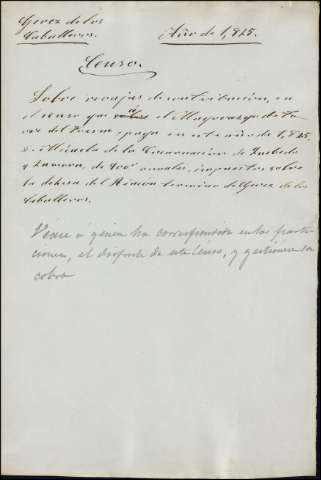 Gerez de los
Caballeros.
Año de 1,825.
Censo.
Sobre revajas de contribucion, en
el censo que el Mayorazgo de
del Fresno paga en este año de 1,825,
a Micaela de la Encarnacion de
y Zamora, de 400 anuales, impuestos, sobre
la dehesa del Rincon termino de Gerez de los
Caballeros.
Vease á quien ha correspondido en las parti-
ciones, el disfrute de este Censo, y gestionese su
cobro